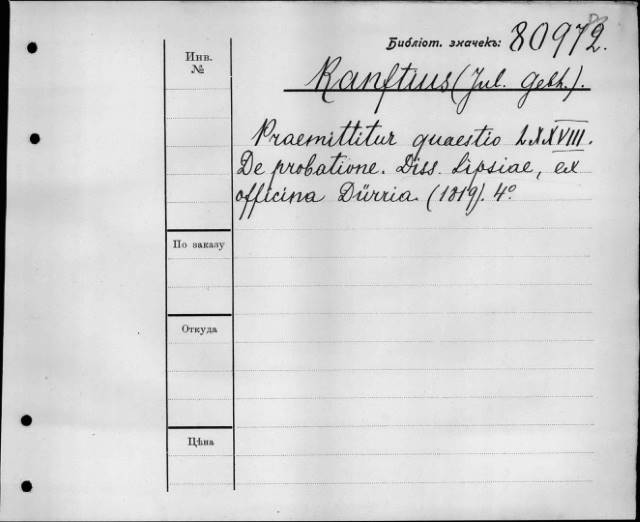 Библіот. значекъ: 80972.
Инв.
№
Ranftius (Jul. Gebh.).
Praemittitur quaestio LXXVIII.
De probatione. Diss. Lipsiae, ex
officina Dürria. (1819). 4º
По заказу
Откуда
Цѣна